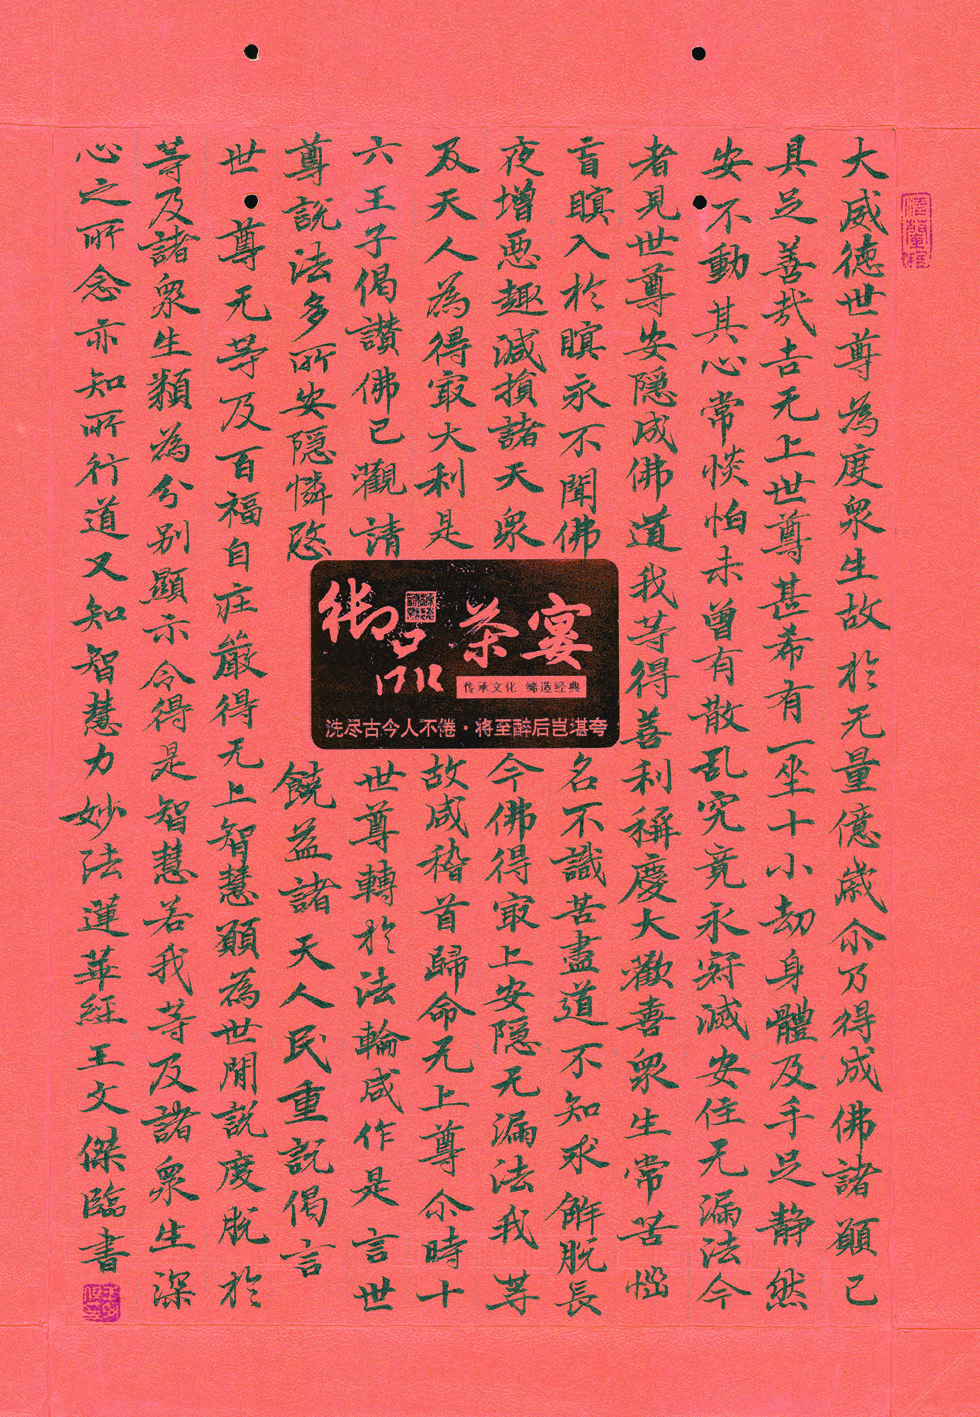 大威德世尊為度眾生故於无量億歲尒乃得成佛諸願已
具足善哉吉无上世尊甚希有一坐十小劫身體及手足静然
安不動其心常惔怕未曾有散乱究竟永寂滅安住无漏法今
者見世尊安隱成佛道我等得善利稱慶大歡喜眾生常苦惱
盲瞑入於瞑永不聞佛名不識苦盡道不知求解脱長
夜增惡趣減損諸天眾今佛得最上安隱无漏法我等
及天人為得最大利是故咸稽首歸命无上尊尒時十
六王子偈讚佛已觀請世尊轉於法輪咸作是言世
尊説法多所安隱憐愍饒益諸天人民重説偈言
世尊无等及百福自庄嚴得无上智慧願為世間説度脱於
等及諸眾生類為分别顯示令得是智慧若我等及諸眾生深
心之所念亦知所行道又知智慧力妙法蓮華經王文傑臨書
御品茶宴
传承文化 缔造经典
洗尽古今人不倦·将至醉后岂堪夸